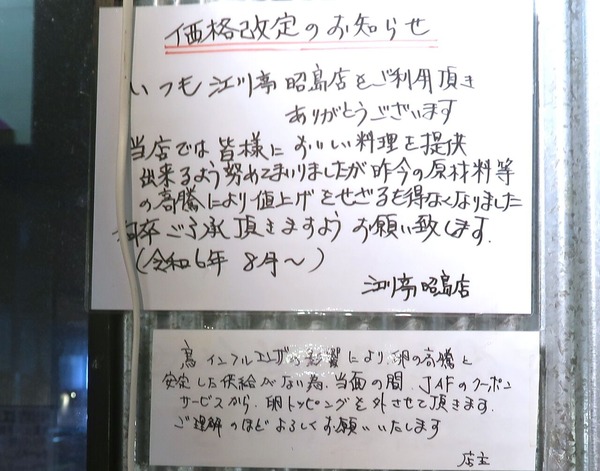 価格改定のお知らせ
いつも江川亭昭島店をご利用頂き
ありがとうございます
当店では皆様においしい料理を提供
出来るよう努めてまいりましたが昨今の原材料等
の高騰により値上げをせざるを得なくなりました
何卒ご了承頂きますようお願い致します.
(令和6年 8月〜)
江川亭昭島店
鳥インフルエンザの影響により卵の高騰と
安定した供給がない為、当面の間、JAFのクーポン
サービスから、卵トッピングを外させて頂きます.
ご理解のほどよろしくお願いいたします
店主